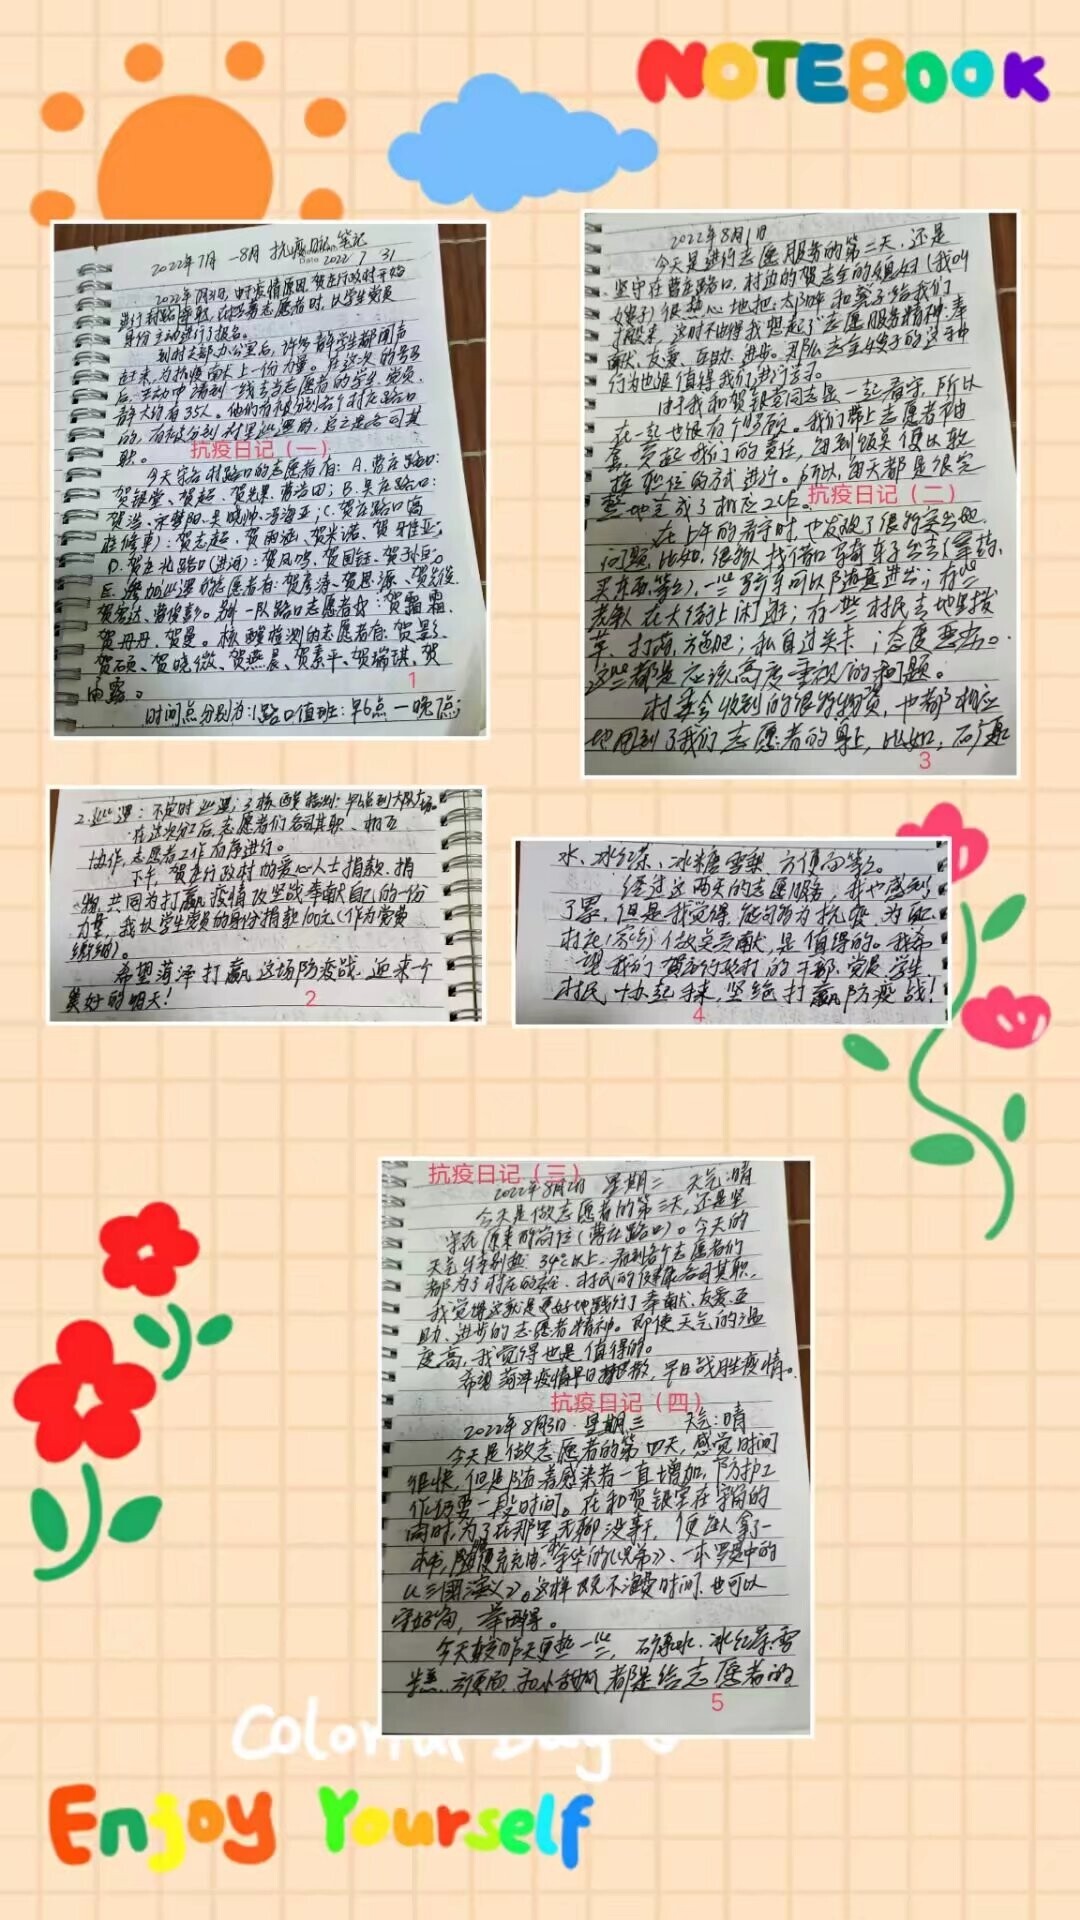 NOTEBOOK
2022年7月-8月 抗疫日记笔记
Date 2022 7 31
2022年7月31日,由于疫情原因,贺庄行政村开始
身份主动进行了报名。
到村支部办公室后,许多青年学生都闻声
赶来,为抗疫献上一份力量。在这次的号召
后,主动申请到一线去当志愿者的学生、党员、
青年大约有35人。他们有被分到各个村庄路口
的,有被分到村里巡逻的,总之是各司其
职。
抗疫日记(一)
今天守各村路口的志愿者有:A.曹庄路口:
D.贺庄北路口(洪河):贺凤鸣、贺国钰、
E.参加巡逻的志愿者有:贺彦涛、贺恩源、
贺丹丹、贺曼。核酸检测的志愿者有:贺影、
贺硕、贺晓微、贺燕晨、贺素平、贺瑞琪、贺
雨露。
1
时间点分别为:1路口值班:早6点一晚7点;
2.巡逻:不定时巡逻;3.核酸检测:
在这次分工后,志愿者们各司其职、相互
协作,志愿者工作有序进行。
下午,贺庄行政村的爱心人士捐款、捐
物,共同为打赢疫情攻坚战奉献自己的一份
力量,我以学生党员的身份捐款100元(作为党费
缴纳)。
希望菏泽打赢这场防疫战,迎来一个
美好的明天!
2
2022年8月1日
今天是进行志愿服务的第二天,还是
坚守在曹庄路口,村边的贺志全的媳妇(我叫
嫂子)很热心地把太阳伞和凳子给我们
拿过来,这时不由得我想起了志愿服务精神:奉
献、友爱、互助、进步。那么志全嫂子的这种
行为也很值得我们进行学习。
由于我和贺银堂同志是一起看守,所以
在一起也很有个照顾。我们带上志愿者袖
套,负起我们的责任,每到饭点便以轮
换班位的方式进行。所以,每天都是很完
整地完成了相应工作。
抗疫日记(二)
在上午的看守时,也发现了很多突出的
问题,比如,很多人找借口要骑车子出去(拿药、
买东西等),一些骑车可以随意进出;有些
老年人在大街上闲逛;有一些村民去地里拔
草、打药、施肥;私自过关卡;态度恶劣。
这些都是应该高度重视的问题。
村委会收到的很多物资,也都相应
地回到了我们志愿者的身上,比如,矿泉
3
水、冰红茶、冰糖雪梨、方便面等。
经过这两天的志愿服务,我也感到
了累,但是我觉得,能够为抗疫、为
村庄(家乡)做点贡献,是值得的。我希
望我们贺庄行政村的干部、党员、学生、
村民,一起努力起来,坚绝打赢防疫战!
4
抗疫日记(三)
2022年8月2日 星期二 天气:晴
今天是做志愿者的第三天,还是坚
守在原来的岗位(曹庄路口)。今天的
天气特别热,34℃以上,看到各个志愿者们
都为了村庄的安全、村民的健康各司其职,
我觉得这就是更好地践行了奉献、友爱、互
助、进步的志愿者精神。即使天气的温
度高,我觉得也是值得的。
希望菏泽疫情早日,早日战胜疫情。
抗疫日记(四)
2022年8月3日 星期三 天气:晴
今天是做志愿者的第四天,感觉时间
很快,但是随着感染者一直增加,防护工
作仍要一段时间。在和贺银堂在守岗的
同时,为了在那里无聊没事干,便每人拿了一
本书,随便充充电,一本余华的《兄弟》、一本罗贯中的
《三国演义》。这样既不浪费时间,也可以
守好岗,一举两得。
今天较昨天更热一些,矿泉水、冰红茶、雪
糕、方便面、和小甜瓜都是给志愿者的
5
Enjoy Yourself